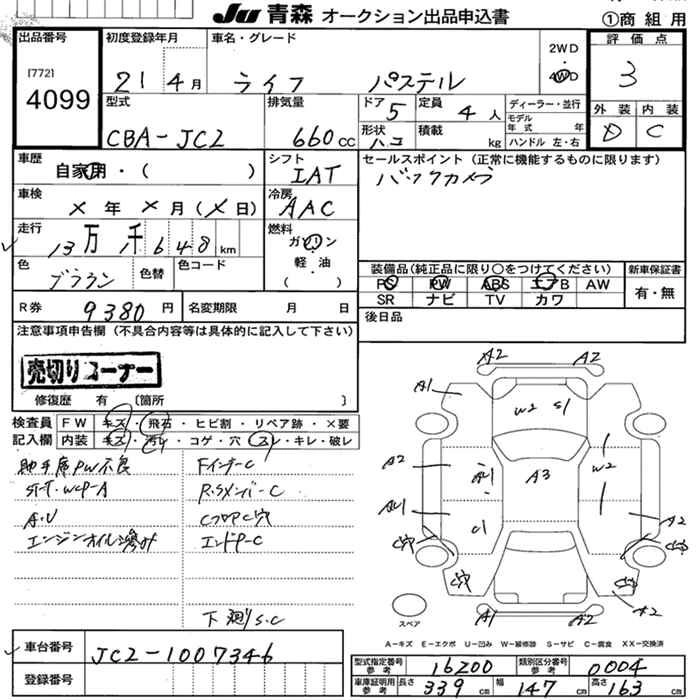 JU 青森 オークション出品申込書
①商 組 用
出品番号
[772]
4099
初度登録年月
21 4月
車名・グレード
ライフ パステル
2WD
4WD
評 価 点
3
型式
CBA-JC2
排気量
660cc
ドア
5
定員
4人
形状
ハコ
積載
kg
ディーラー・並行
モデル
年 式 年
ハンドル 左・右
外 装
D
内 装
C
車歴
自家用・( )
シフト
IAT
セールスポイント(正常に機能するものに限ります)
バックカメラ
車検
×年 ×月(×日)
冷房
AAC
走行
13万 千648km
燃料
ガソリン
軽・油
( )
色
ブラウン
色替
色コード
装備品(純正品に限り○をつけてください)
PS PW ABS エアB AW
SR ナビ TV カワ
新車保証書
有・無
R券
9380円
名変期限 月 日
後日品
注意事項申告欄(不具合内容等は具体的に記入して下さい)
売切りコーナー
修復歴 有 [箇所 ]
検査員
記入欄
FW キズ・飛石・ヒビ割・リペア跡・×要
内装 キズ・汚レ・コゲ・穴・スレ・キレ・破レ
助手席PW不良
ST-T・WCP-A
A・U
エンジンオイル滲み
Fインナー C
R・Sメンバー C
CフロアC穴
エンドP-C
下廻りS.C
A2
A2
A1
W2
S1
A2
W2
A3
C1
A2
C穴
A1
A2
A2
スペア
A―キズ E―エクボ U―凹み W―板修跡 S―サビ C―腐食 XX―交換済
車台番号
JC2-1007346
登録番号
型式指定番号
参考
16200
類別区分番号
参考
0004
車庫証明用
参考
長さ
339cm
幅
147cm
高さ
163cm